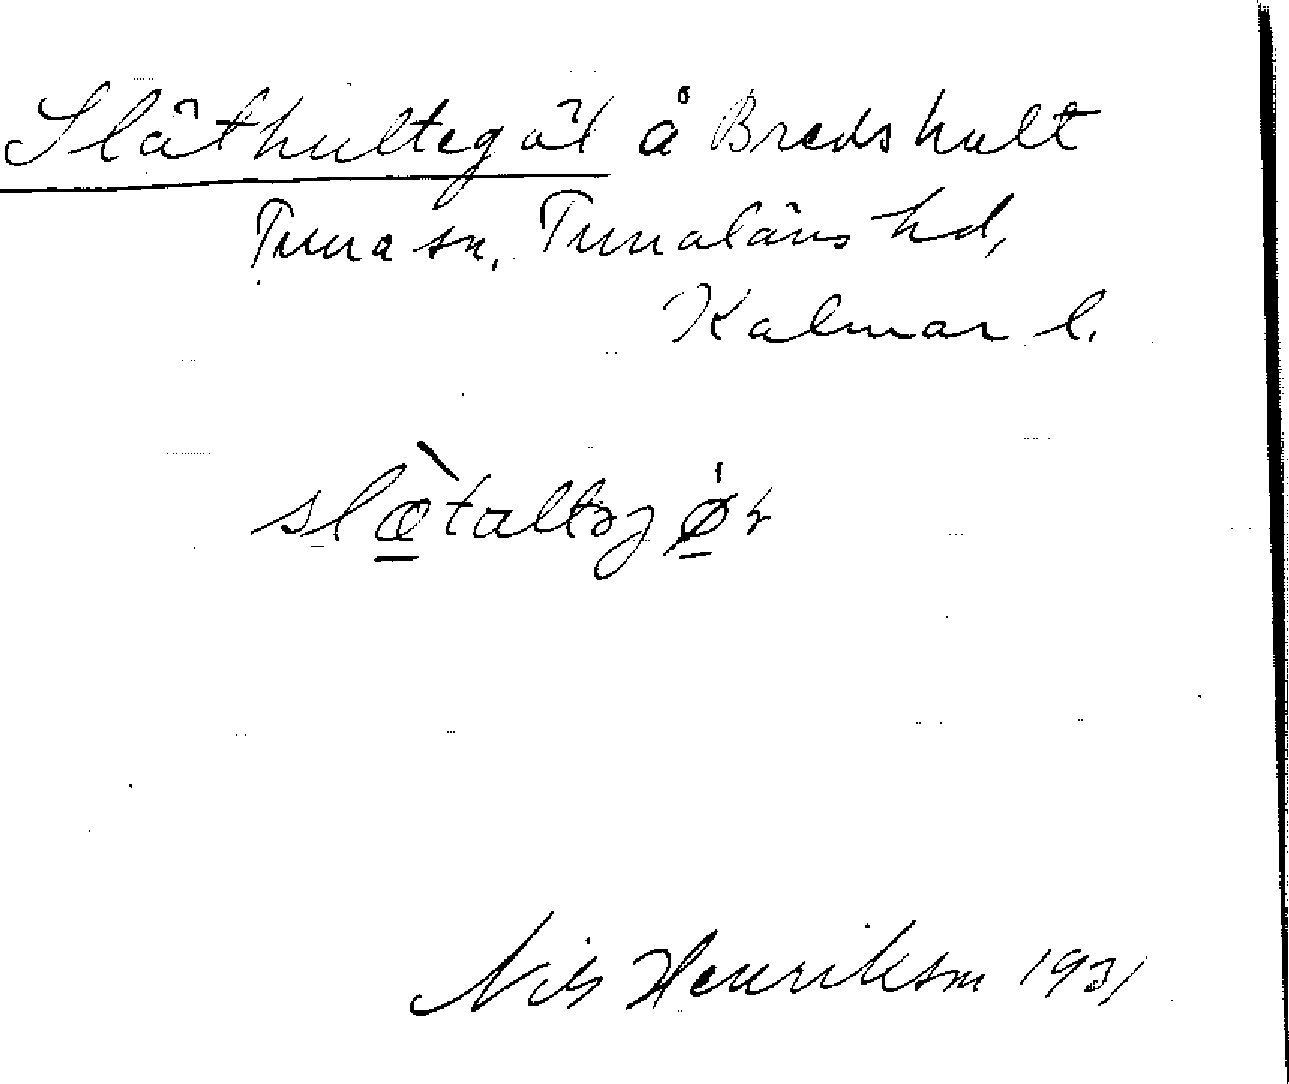 Släthultegöl å Bredshult
Tuna sn, Tunaläns hd,
Kalmar l.
Nils Henriksson 1931